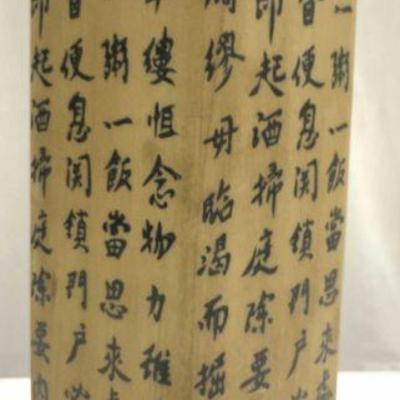 即起酒掃庭除要內
昏便息関鎖門戶必
粥一飯當思來處
縷恒念物力維
綢繆毋臨渴而掘
即起酒掃庭除要
昏便息関鎖門戶必
一粥一飯當思來處